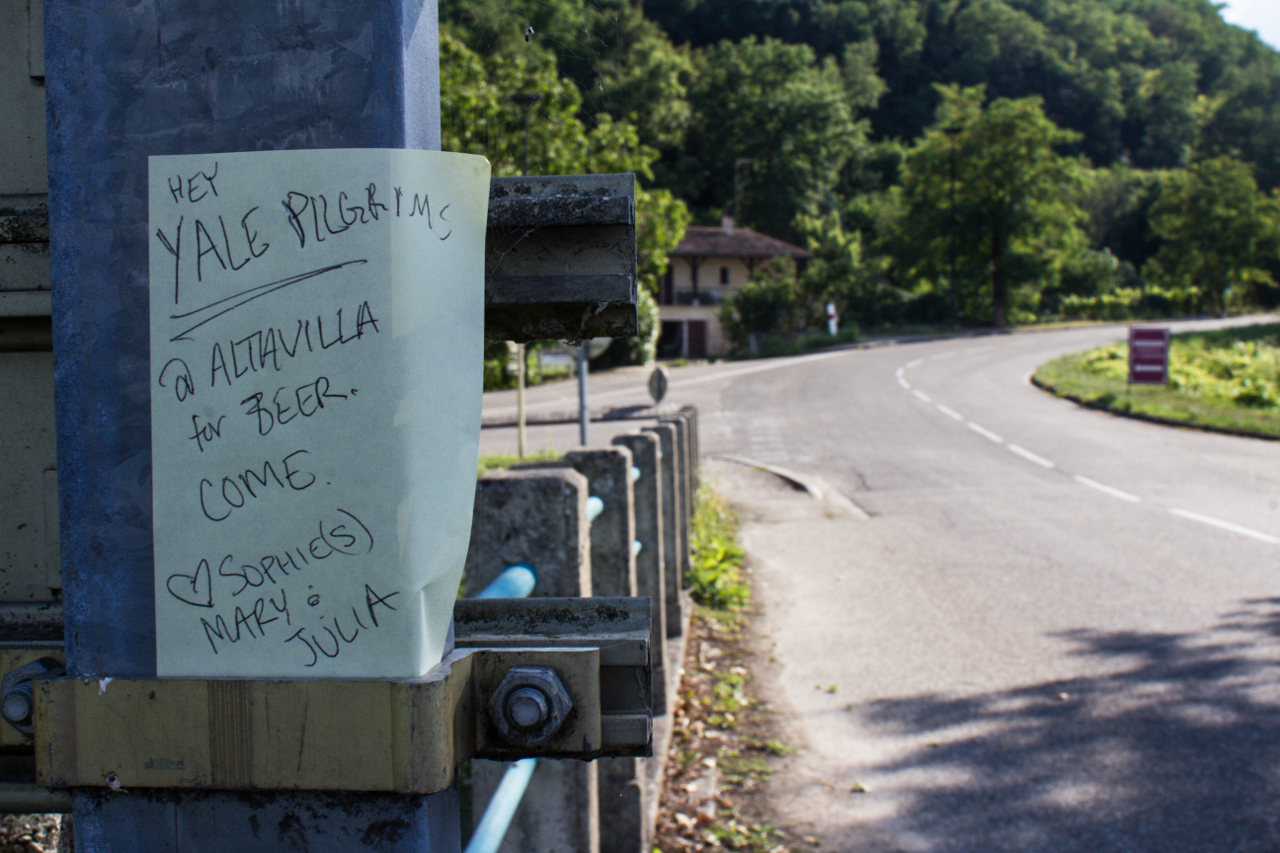 HEY
YALE PILGRIMS
@ ALTAVILLA
for BEER.
COME.
♡ SOPHIE(S)
MARY &
JULIA